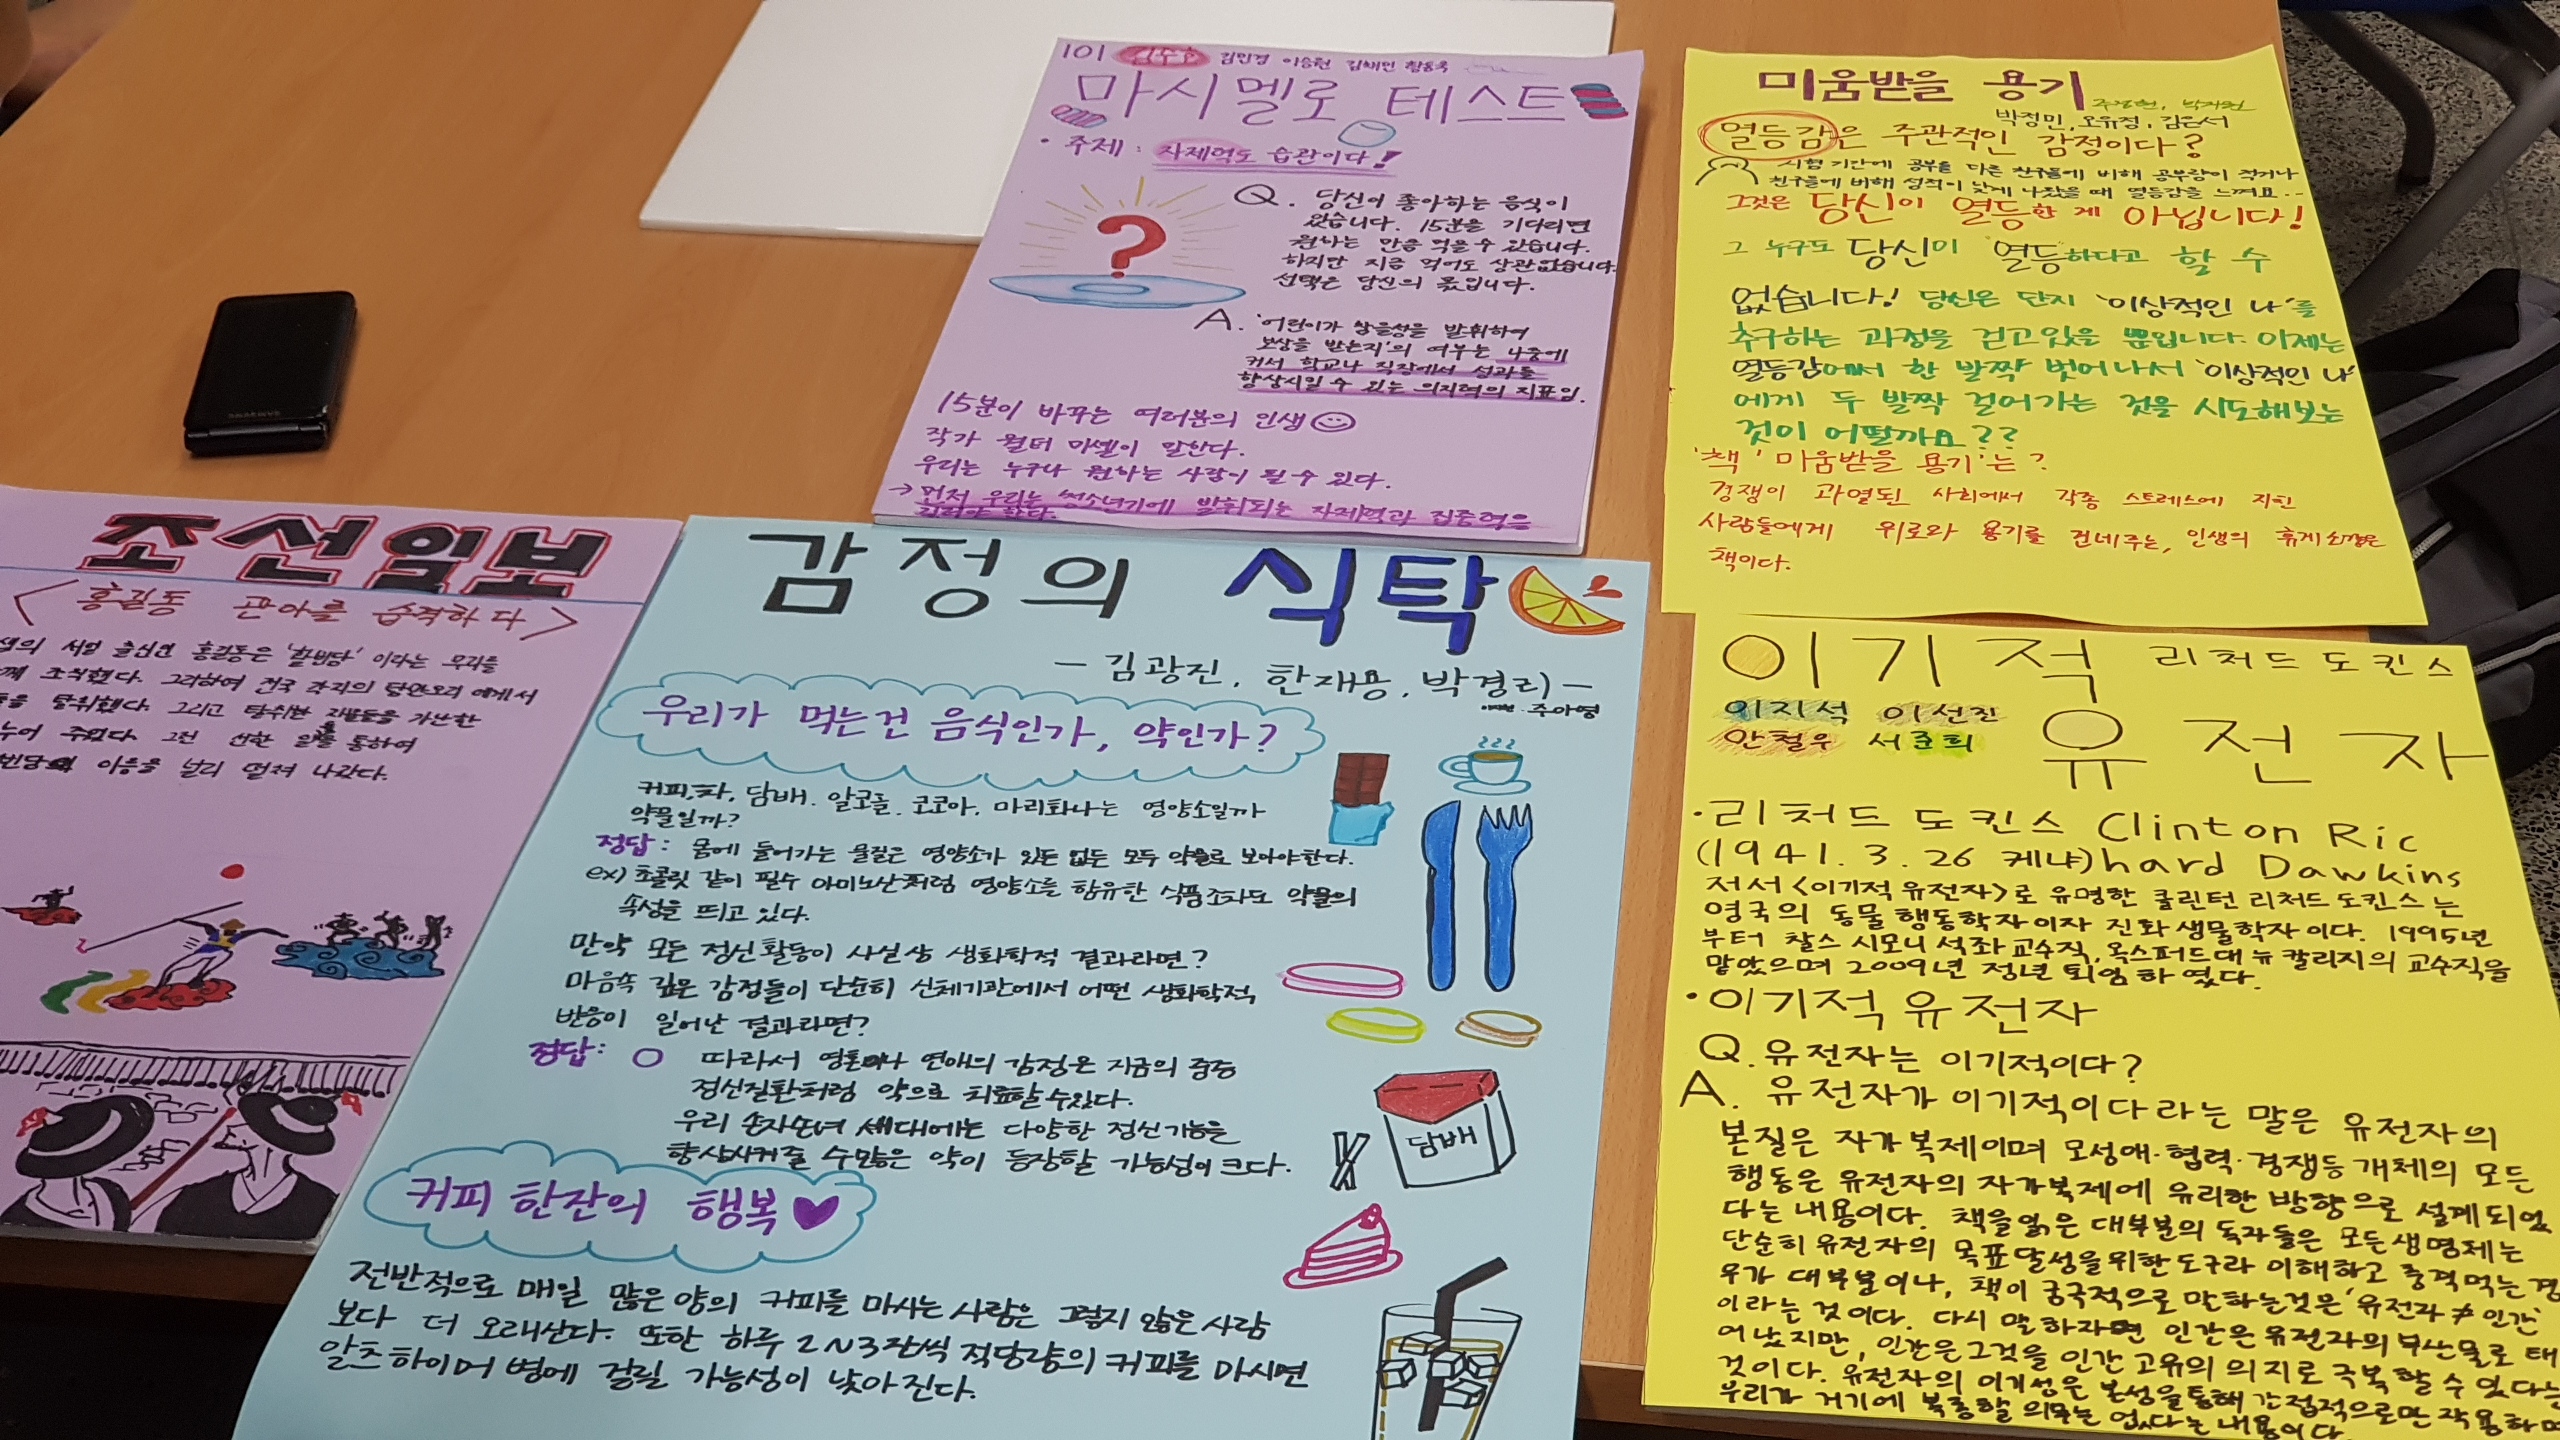 101 김민경 이승현 김채민 황동욱
마시멜로 테스트
• 주제: 자제력도 습관이다!
Q. 당신이 좋아하는 음식이
있습니다. 15분을 기다리면
원하는 만큼 먹을 수 있습니다.
하지만 지금 먹어도 상관없습니다.
선택은 당신의 몫입니다.
?
A. '어린이가 참을성을 발휘하여
보상을 받는지'의 여부는 나중에
커서 학교나 직장에서 성과를
향상시킬 수 있는 의지력의 지표임.
15분이 바꾸는 여러분의 인생
작가 월터 미셸이 말한다.
우리는 누구나 원하는 사람이 될 수 있다.
→ 먼저 우리는 청소년기에 발휘되는 자제력과 집중력을
길러야 한다.
미움받을 용기
주정현, 박지원
박정민, 오유정, 김은서
열등감은 주관적인 감정이다?
시험 기간에 공부를 다른 친구들에 비해 공부량이 적거나
친구들에 비해 성적이 낮게 나왔을 때 열등감을 느껴요...
그것은 당신이 열등한 게 아닙니다!
그 누구도 당신이 열등하다고 할 수
없습니다! 당신은 단지 '이상적인 나'를
추구하는 과정을 걷고있을 뿐입니다. 이제는
열등감에서 한 발짝 벗어나서 '이상적인 나'
에게 두 발짝 걸어가는 것을 시도해보는
것이 어떨까요??
'책' 미움받을 용기'는?
경쟁이 과열된 사회에서 각종 스트레스에 지친
사람들에게 위로와 용기를 건네주는, 인생의 휴게소같은
책이다.
SAMSUNG
조선일보
<홍길동 관아를 습격하다>
서얼 출신인 홍길동은 '활빈당' 이라는 무리를
조직했다. 그리하여 전국 각지의 탐관오리 에게서
탈취했다. 그리고 탈취한 재물들을 가난한
주었다. 그런 선한 일을 통하여
이름을 널리 떨쳐 나갔다.
감정의 식탁
- 김광진, 한재용, 박경리 -
주아영
우리가 먹는건 음식인가, 약인가?
커피, 차, 담배, 알코올, 코코아, 마리화나는 영양소일까
약물일까?
정답: 몸에 들어가는 물질은 영양소가 있든 없든 모두 약물로 보아야한다.
ex) 초콜릿 같이 필수 아미노산처럼 영양소를 함유한 식품조차도 약물의
속성을 띄고 있다.
만약 모든 정신 활동이 사실상 생화학적 결과라면?
마음속 깊은 감정들이 단순히 신체기관에서 어떤 생화학적
반응이 일어난 결과라면?
정답: O 따라서 영혼이나 연애의 감정은 지금의 중증
정신질환처럼 약으로 치료할 수 있다.
우리 손자손녀 세대에는 다양한 정신기능을
향상시켜줄 수많은 약이 등장할 가능성이 크다.
담배
커피 한잔의 행복
전반적으로 매일 많은 양의 커피를 마시는 사람은 그렇지 않은 사람
보다 더 오래산다. 또한 하루 2~3잔씩 적당량의 커피를 마시면
알츠하이머 병에 걸릴 가능성이 낮아진다.
이기적 리처드 도킨스
유전자
이지석 이선진
안철우 서준희
• 리처드 도킨스 Clinton Ric
(1941. 3. 26 케냐) hard Dawkins
저서 <이기적 유전자>로 유명한 클린턴 리처드 도킨스는
영국의 동물 행동학자이자 진화 생물학자이다. 1995년
부터 찰스 시모니 석좌 교수직, 옥스퍼드대 뉴 칼리지의 교수직을
맡았으며 2009년 정년 퇴임하였다.
• 이기적 유전자
Q. 유전자는 이기적이다?
A. 유전자가 이기적이다 라는 말은 유전자의
본질은 자가복제이며 모성애·협력·경쟁등 개체의 모든
행동은 유전자의 자가복제에 유리한 방향으로 설계되었
다는 내용이다. 책을 읽은 대부분의 독자들은 모든 생명체는
단순히 유전자의 목표달성을 위한 도구라 이해하고 충격먹는 경
우가 대부분이나, 책이 궁극적으로 말하는것은 '유전자≠인간'
이라는 것이다. 다시 말하자면 인간은 유전자의 부산물로 태
어났지만, 인간은 그것을 인간 고유의 의지로 극복할 수 있다는
것이다. 유전자의 이기성은 본성을 통해 간접적으로만 작용하며
우리가 거기에 복종할 의무는 없다는 내용이다.